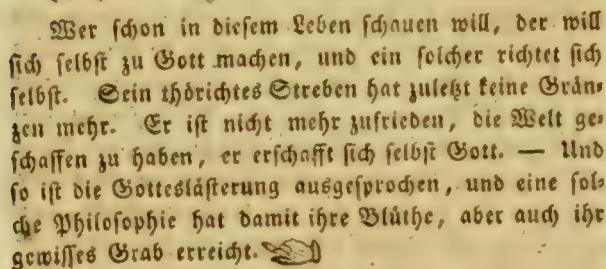 Wer schon in diesem Leben schauen will, der will
sich selbst zu Gott machen, und ein solcher richtet sich
selbst. Sein thörichtes Streben hat zuletzt keine Grän⸗
zen mehr. Er ist nicht mehr zufrieden, die Welt ge⸗
schaffen zu haben, er erschafft sich selbst Gott. — Und
so ist die Gotteslästerung ausgesprochen, und eine sol⸗
che Philosophie hat damit ihre Blüthe, aber auch ihr
gewisses Grab erreicht.